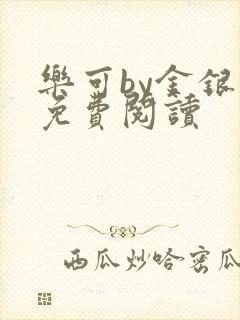 樂可by金銀
免費閱讀
西瓜炒哈密瓜